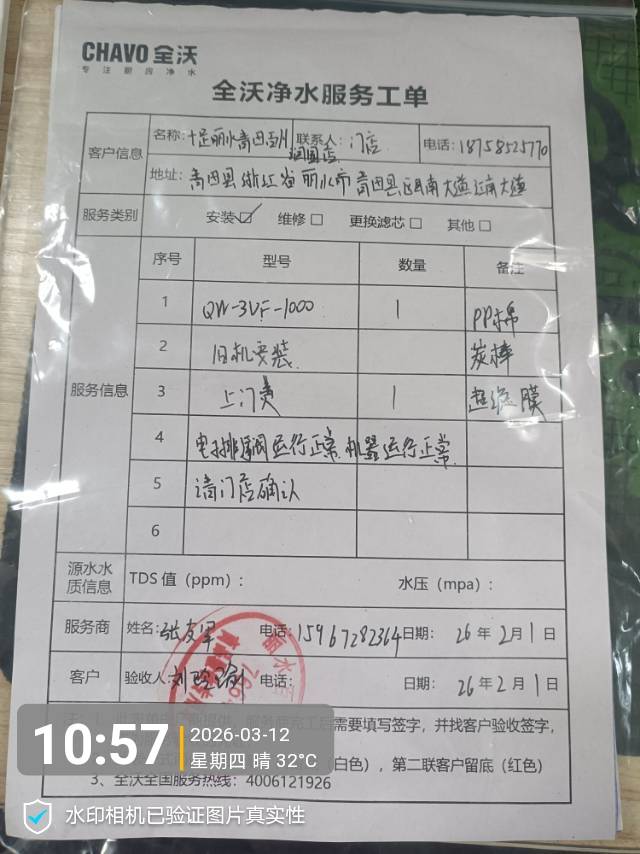 CHAVO 全沃
专注厨房净水
全沃净水服务工单
客户信息 名称: 十足丽水青田 联系人: 门店 电话: 18758525770
地址: 青田县浙江省丽水市青田县 南大道江南大道
服务类别 安装☑ 维修□ 更换滤芯□ 其他□
服务信息 序号 型号 数量 备注
1 QW-3UF-1000 1 PP棉
2 旧机安装 炭棒
3 上门费 1 超滤膜
4 电排阀运行正常 机器运行正常
5 请门店确认
6
源水水质信息 TDS 值（ppm）: 水压（mpa）:
服务商 姓名: 张 电话: 15967282364 日期: 26 年 2 月 1 日
客户 验收人: 刘 电话: 日期: 26 年 2 月 1 日
需要填写签字，并找客户验收签字，
（白色），第二联客户留底（红色）
3、全沃全国服务热线：4006121926
10:57
2026-03-12
星期四 晴 32°C
水印相机已验证图片真实性